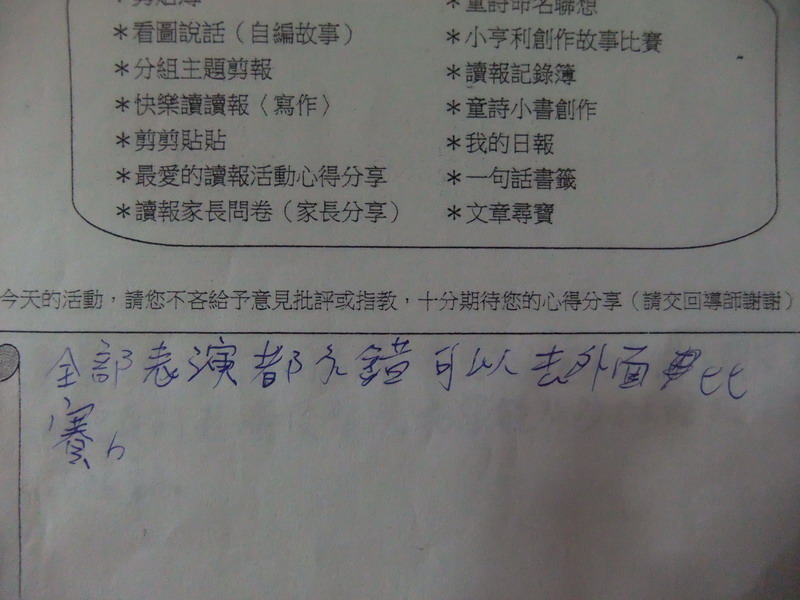 剪貼簿
＊童詩命名聯想
＊看圖說話（自編故事）
＊小亨利創作故事比賽
＊分組主題剪報
＊讀報記錄簿
＊快樂讀讀報〈寫作〉
＊童詩小書創作
＊剪剪貼貼
＊我的日報
＊最愛的讀報活動心得分享
＊一句話書籤
＊讀報家長問卷（家長分享）
＊文章尋寶
今天的活動，請您不吝給予意見批評或指教，十分期待您的心得分享（請交回導師謝謝）
全部表演都不錯可以去外面比
賽。